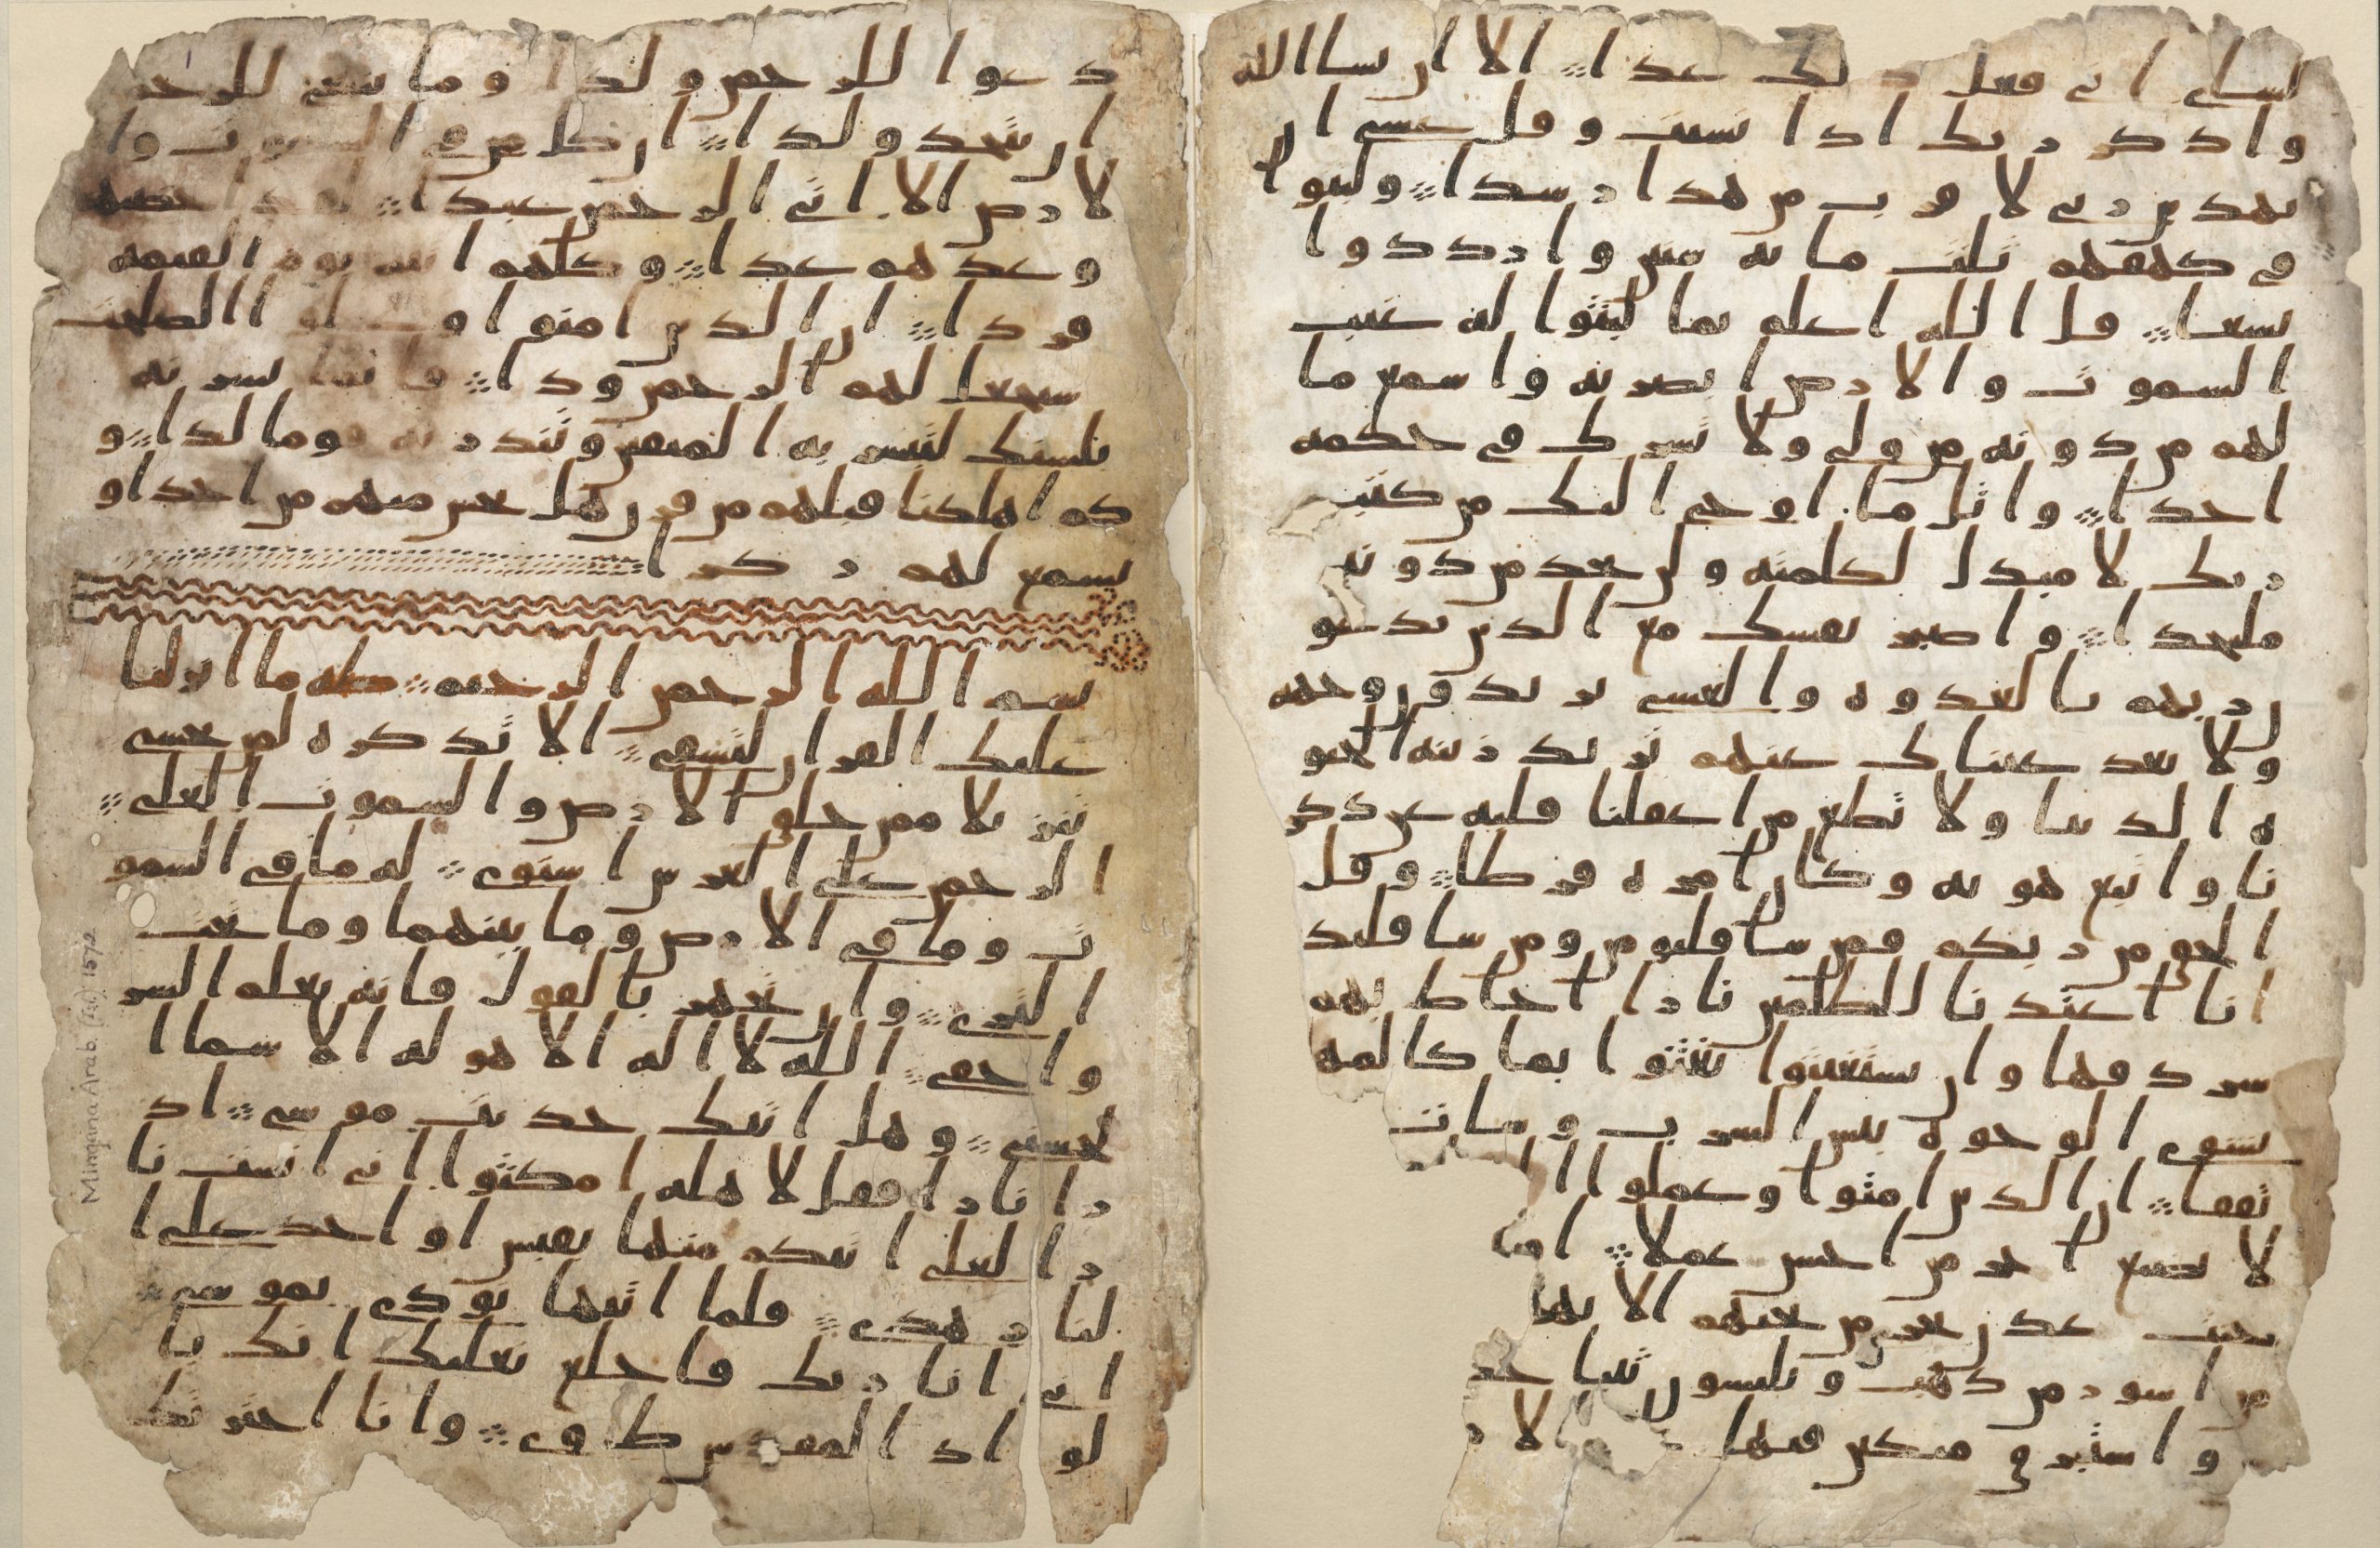 لشاي اني فعل ذلك غدا الا ان يشا الله
واذكر ربك اذا نسيت وقل عسى ان
يهدين ربي لاقرب من هذا رشدا ولبثوا
في كهفهم ثلث مايه سنين وازددوا
تسعا قل الله اعلم بما لبثوا له غيب
السموت والارض ابصر به واسمع ما
لهم من دونه من ولي ولا يشرك في حكمه
احدا واتل ما اوحي اليك من كتب
ربك لا مبدل لكلمته ولن تجد من دونه
ملتحدا واصبر نفسك مع الذين يدعو
ن ربهم بالغدوه والعشي يريدون وجهه
ولا تعد عيناك عنهم تريد زينه الحيو
ه الدنيا ولا تطع من اغفلنا قلبه عن ذكر
نا واتبع هويه وكان امره فرطا وقل
الحق من ربكم فمن شا فليومن ومن شا فليك
انا اعتدنا للظلمين نارا احاط بهم
سردقها وان يستغيثوا يغثوا بما كالمه
يشوي الوجوه بيس الشرب وسات
تفقا ان الذين امنوا وعملوا ا
لا نضيع اجر من احسن عملا او
تحت عدن تجري من تحتهم الانها
من اسور من ذهب ويلبسون ثيبا خ
واستبرق متكين فيها الار
دعوا للرحمن ولدا وما ينبغي للرحمن
ان يتخذ ولدا ان كل من في السموت وا
لارض الا اتي الرحمن عبدا لقد احصيهم
وعدهم عدا وكلهم اتيه يوم القيمه
فردا ان الذين امنوا وعملوا الصلحت
سيجعل لهم الرحمن ودا فانما يسرنه
بلسنك لتبشر به المتقين وتنذر به قوما لدا و
كم اهلكنا قبلهم من قرن هل تحس منهم من احد او
تسمع لهم ركزا
بسم الله الرحمن الرحيم طه ما انزلنا
عليك القران لتشقى الا تذكره لمن يخشى
تنزيلا ممن خلق الارض والسموت العلى
الرحمن على العرش استوى له ما في السمو
ت وما في الارض وما بينهما وما تحت
الثرى وان تجهر بالقول فانه يعلم السر
واخفى الله لا اله الا هو له الاسما ا
لحسنى وهل اتيك حديث موسى اذ
را نارا فقل لاهله امكثوا اني انست نا
را لعلي اتيكم منها بقبس او اجد على ا
لنار هدى فلما اتيها نودي يموسى
اني انا ربك فاخلع نعليك انك با
لواد المقدس طوى وانا اخترتك
Mingana Arab. (Isl) 1572